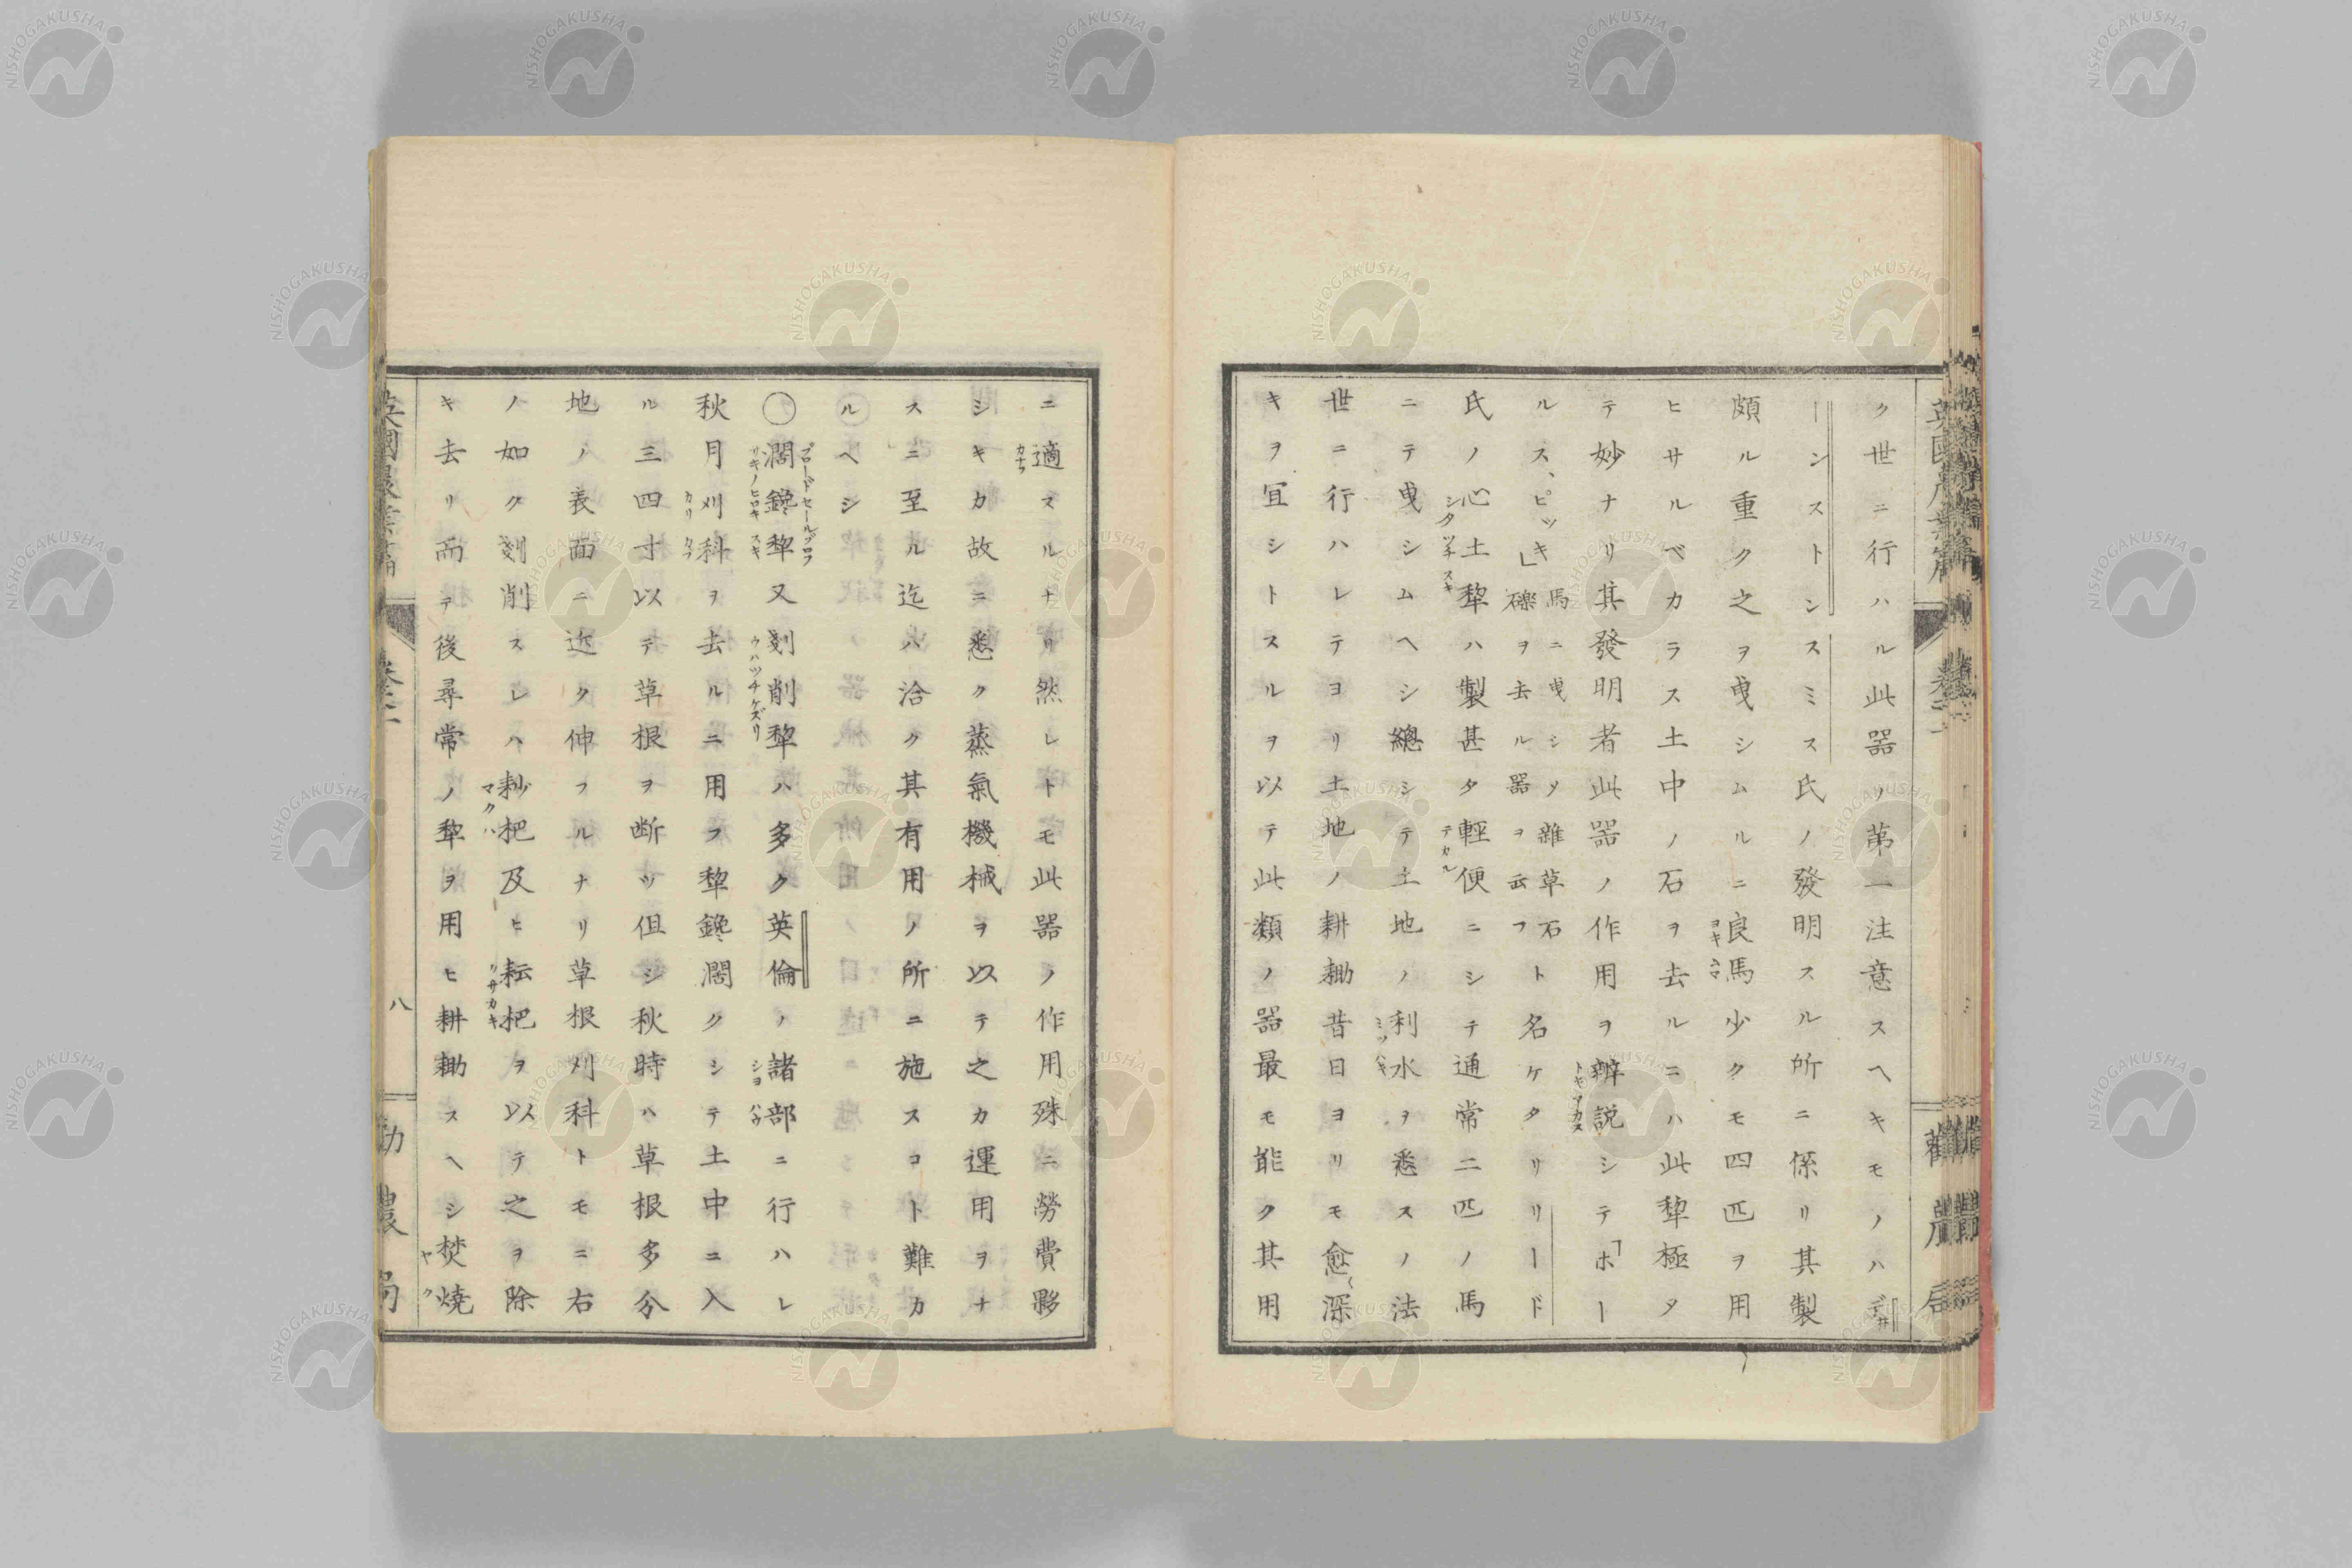 ク世ニ行ハル此器ノ第一注意スヘキモノハデ井
ーンストンスミス氏ノ發明スル所ニ係リ其製
頗ル重ク之ヲ曳シムルニ良馬少クモ四匹ヲ用
ヒサルベカラス土中ノ石ヲ去ルニハ此犂極タ
テ妙ナリ其發明者此器ノ作用ヲ辨説シテ「ホー
ルス、ピッキ」馬ニ曳シメ雜草石礫ヲ去ル器ヲ云フト名ケタリリード
氏ノ心土犂ハ製甚タ輕便ニシテ通常二匹ノ馬
ニテ曳シムヘシ總シテ土地ノ利水ヲ悉スノ法
世ニ行ハレテヨリ土地ノ耕耡昔日ヨリモ愈深
キヲ宜シトスルヲ以テ此類ノ器最モ能ク其用
ニ適スルナリ然レトモ此器ノ作用殊ニ勞費夥
シキカ故ニ悉ク蒸氣機械ヲ以テ之カ運用ヲナ
スニ至ル迄ハ洽ク其有用ノ所ニ施スコト難カ
ルヘシ
〇濶鑱犂又剗削犂ハ多ク英倫ノ諸部ニ行ハレ
秋月刈科ヲ去ルニ用フ犂鑱濶クシテ土中ニ入
ル三四寸以テ草根ヲ断ツ但シ秋時ハ草根多分
地ノ表面ニ近ク伸フルナリ草根刈科トモニ右
ノ如ク剗削スレハ耖杷及ヒ耘杷ヲ以テ之ヲ除
キ去リ而テ後尋常ノ犂ヲ用ヒ耕耡スヘシ焚燒
八
NISHOGAKUSHA